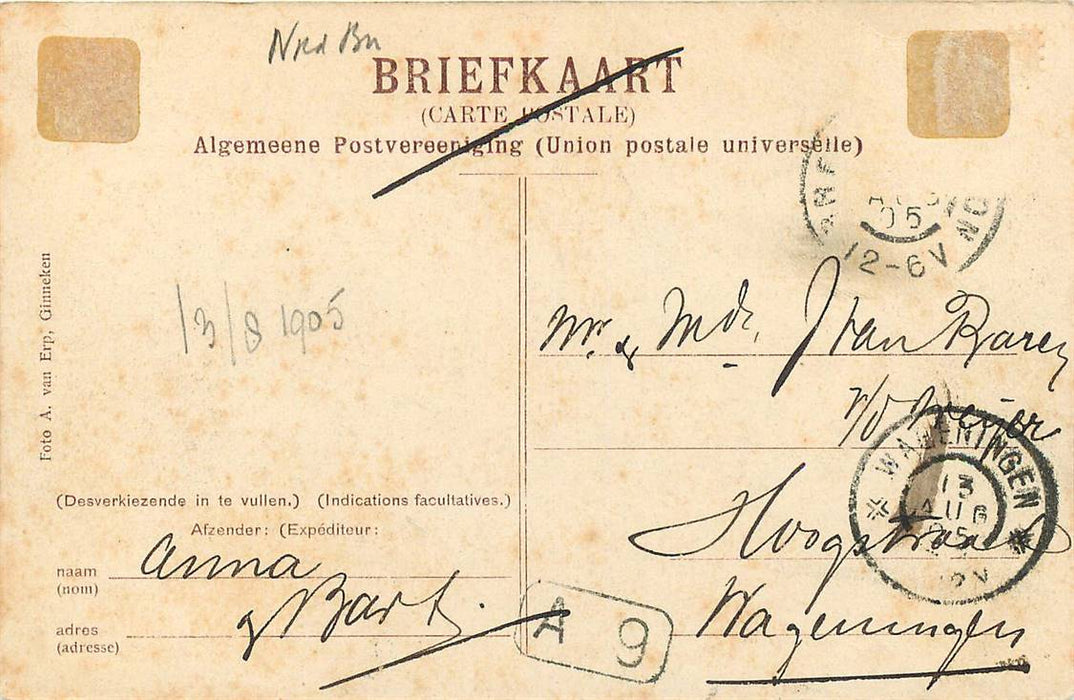 Ned Bn
BRIEFKAART
(CARTE POSTALE)
Algemeene Postvereeniging (Union postale universelle)
AUG
05
12-6V
Foto A. van Erp, Ginneken
13/8 1905
Mr. & Mdr. J van
v/d
Hoogstraat
Wageningen
WAGENINGEN
13
AUG
05
12V
(Desverkiezende in te vullen.) (Indications facultatives.)
Afzender: (Expéditeur:
naam
(nom)
Anna
adres
(adresse)
Bart.
A 9